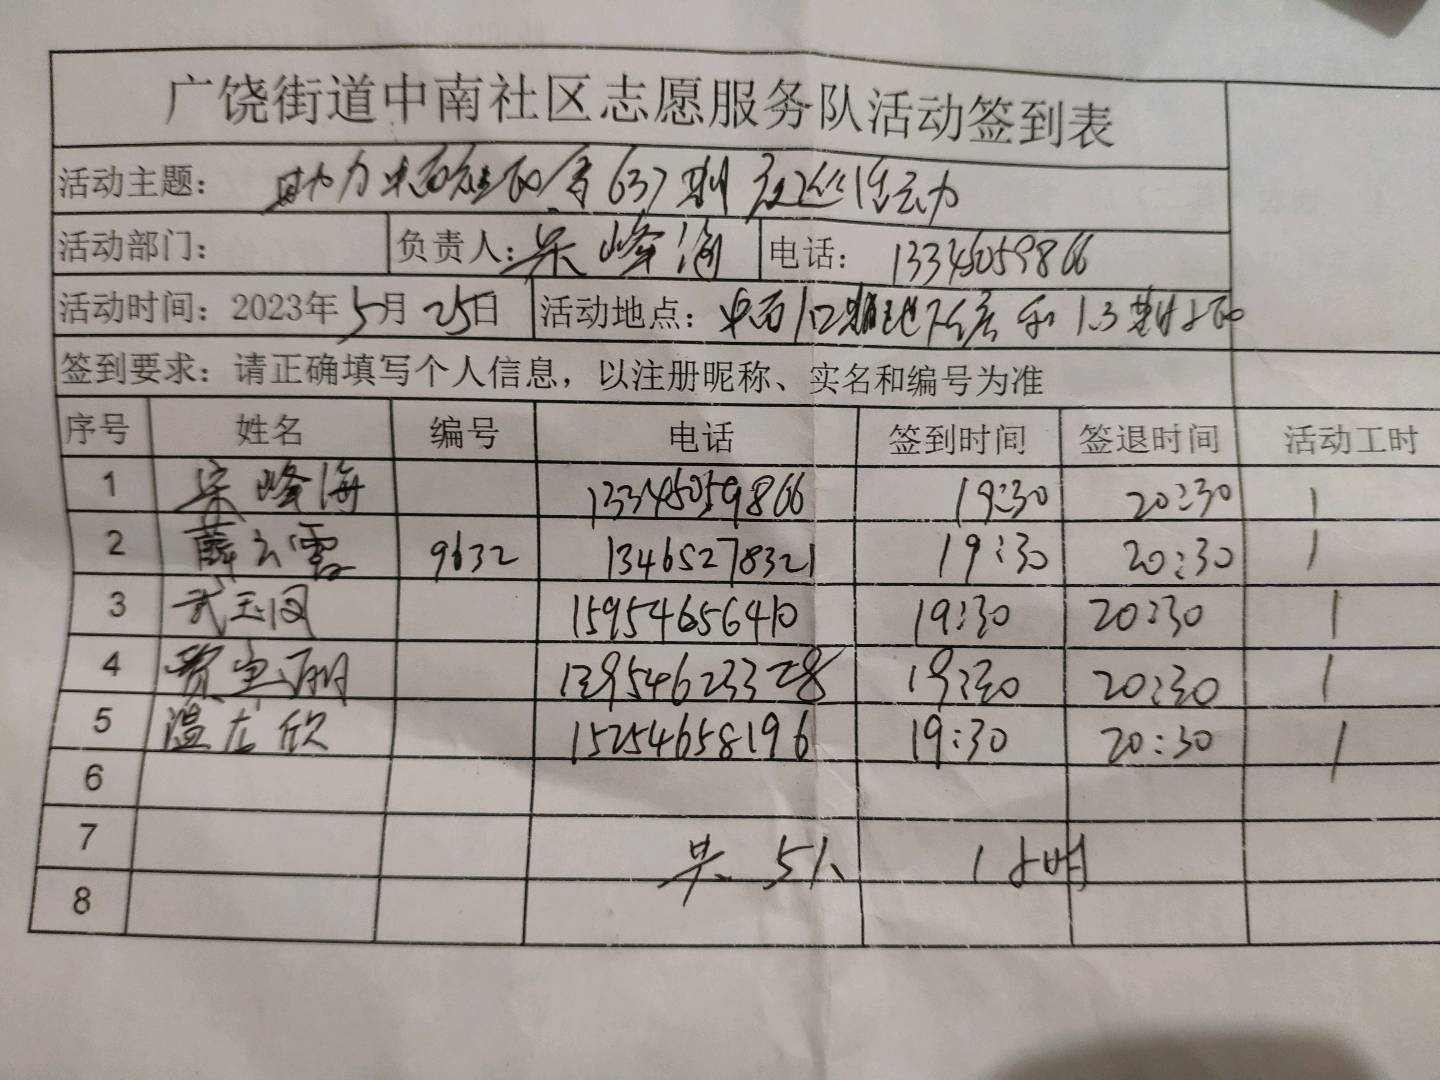 广饶街道中南社区志愿服务队活动签到表
活动主题： 助力 637期 夜巡活动
活动部门： 负责人：宋峰海 电话： 13345059866
活动时间：2023年5月25日 活动地点： 和1.3期
签到要求：请正确填写个人信息，以注册昵称、实名和编号为准
序号 姓名 编号 电话 签到时间 签退时间 活动工时
1 宋峰海 13345059866 19:30 20:30 1
2 薛云霞 9632 13465278321 19:30 20:30 1
3 武玉同 15954656410 19:30 20:30 1
4 贾宝珊 13954623328 19:30 20:30 1
5 温友欣 15254658196 19:30 20:30 1
6
7 共5人 1小时
8